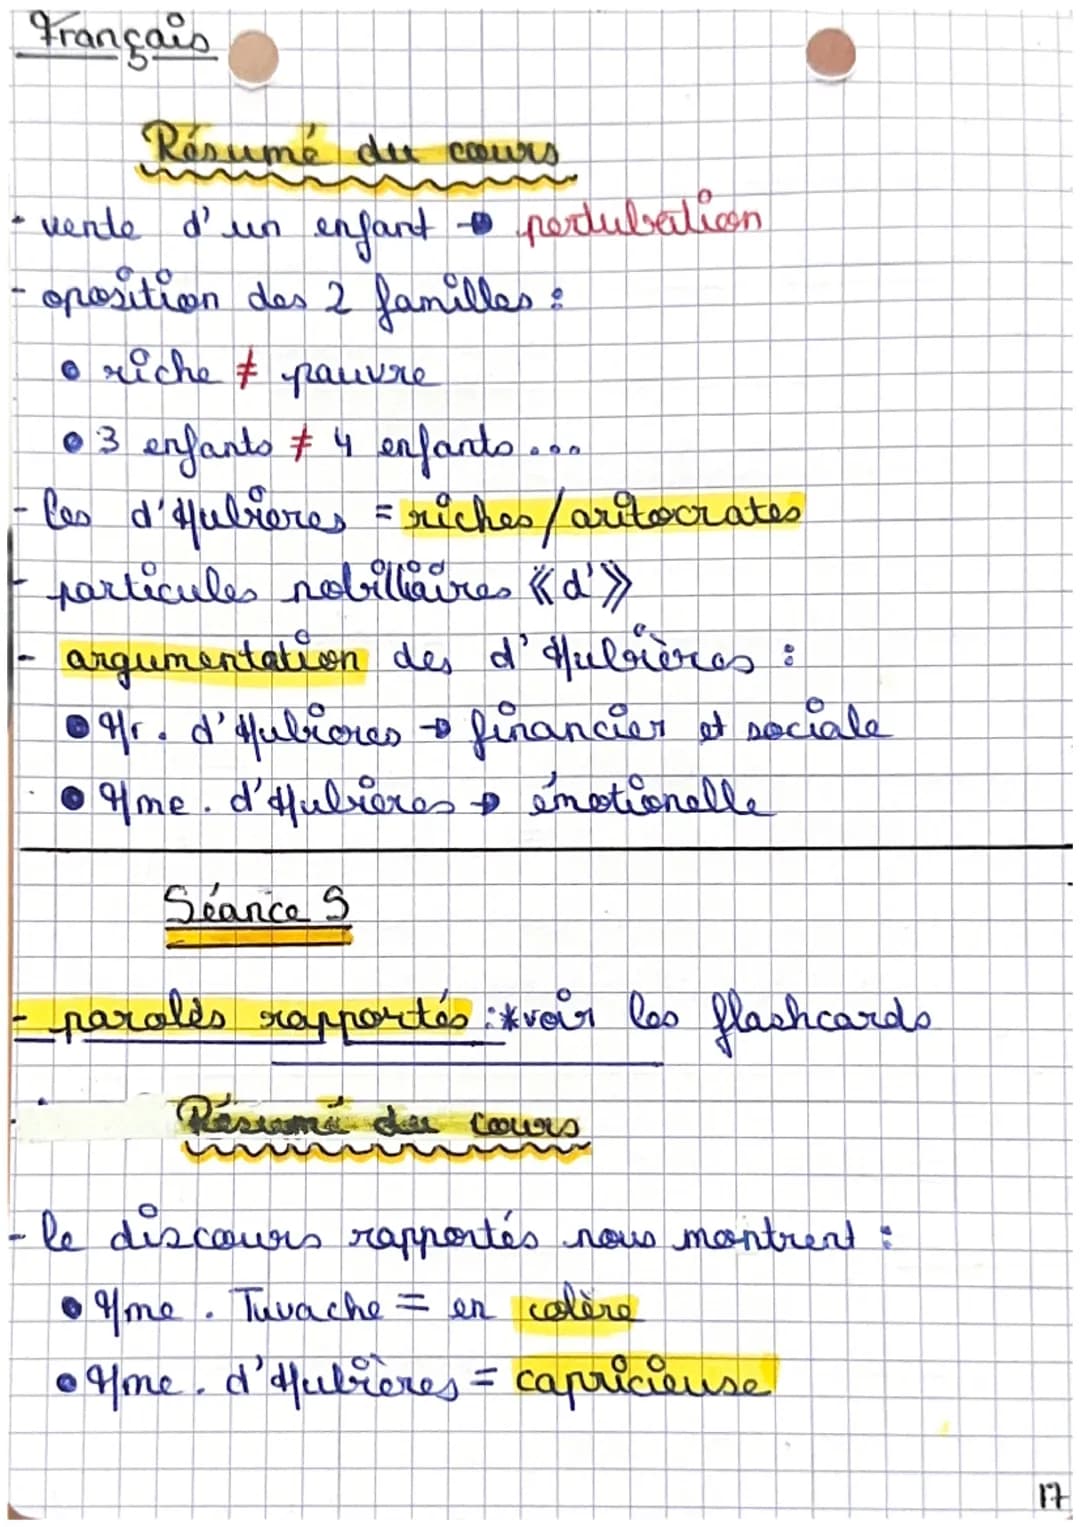 Français
Résumé du cours
- vente d'un enfant → pertubation
- oposition des 2 familles :
• riche ≠ pauvre
• 3 enfants ≠ 4 enfants...
- les d'Hubières = riches / aritocrates
- particules nobilliaires « d' »
- argumentation des d'Hubières :
• Mr. d'Hubières → financier et sociale
• Mme. d'Hubières → émotionelle
Séance 5
- paroles rapportés : *voir les flashcards
Résumé du cours
- le discours rapportés nous montrent :
• Mme. Tuvache = en colère
• Mme. d'Hubières = capricieuse
17